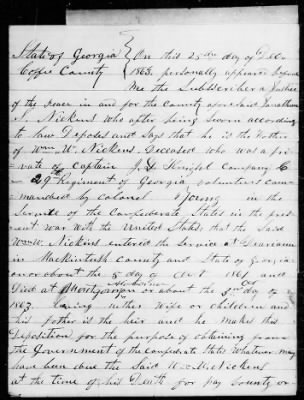 State of Georgia
Coffee County
On this 25th day of Dec
1863. personally appeared before
Me the Subscriber a Justice
of the Peace in and for the County aforesaid Jonathan
N. Nickens who after being Sworn according
to law Deposes and Says that he is the Father
of Wm. W. Nickens Deceased who was a pri
vate of Captain J. Y. Knight Company C
29th Regiment of Georgia volunteers com
manded by Colonel Young in the
Service of the Confederate States in the pres
ent war with the United States; that the Said
Wm. W. Nickens entered the Service at
in Mackintosh County and State of Georgia
on or about the 5 day of Oct 1861 and
Died at Montgomery or about the 3rd day of
1863. leaving neither Wife or children and
his father is the heir and he makes this
Deposition for the purpose of obtaining from
the Government of the confederate States Whatever may
have been due the Said Nickens
at the time of his Death for pay bounty or